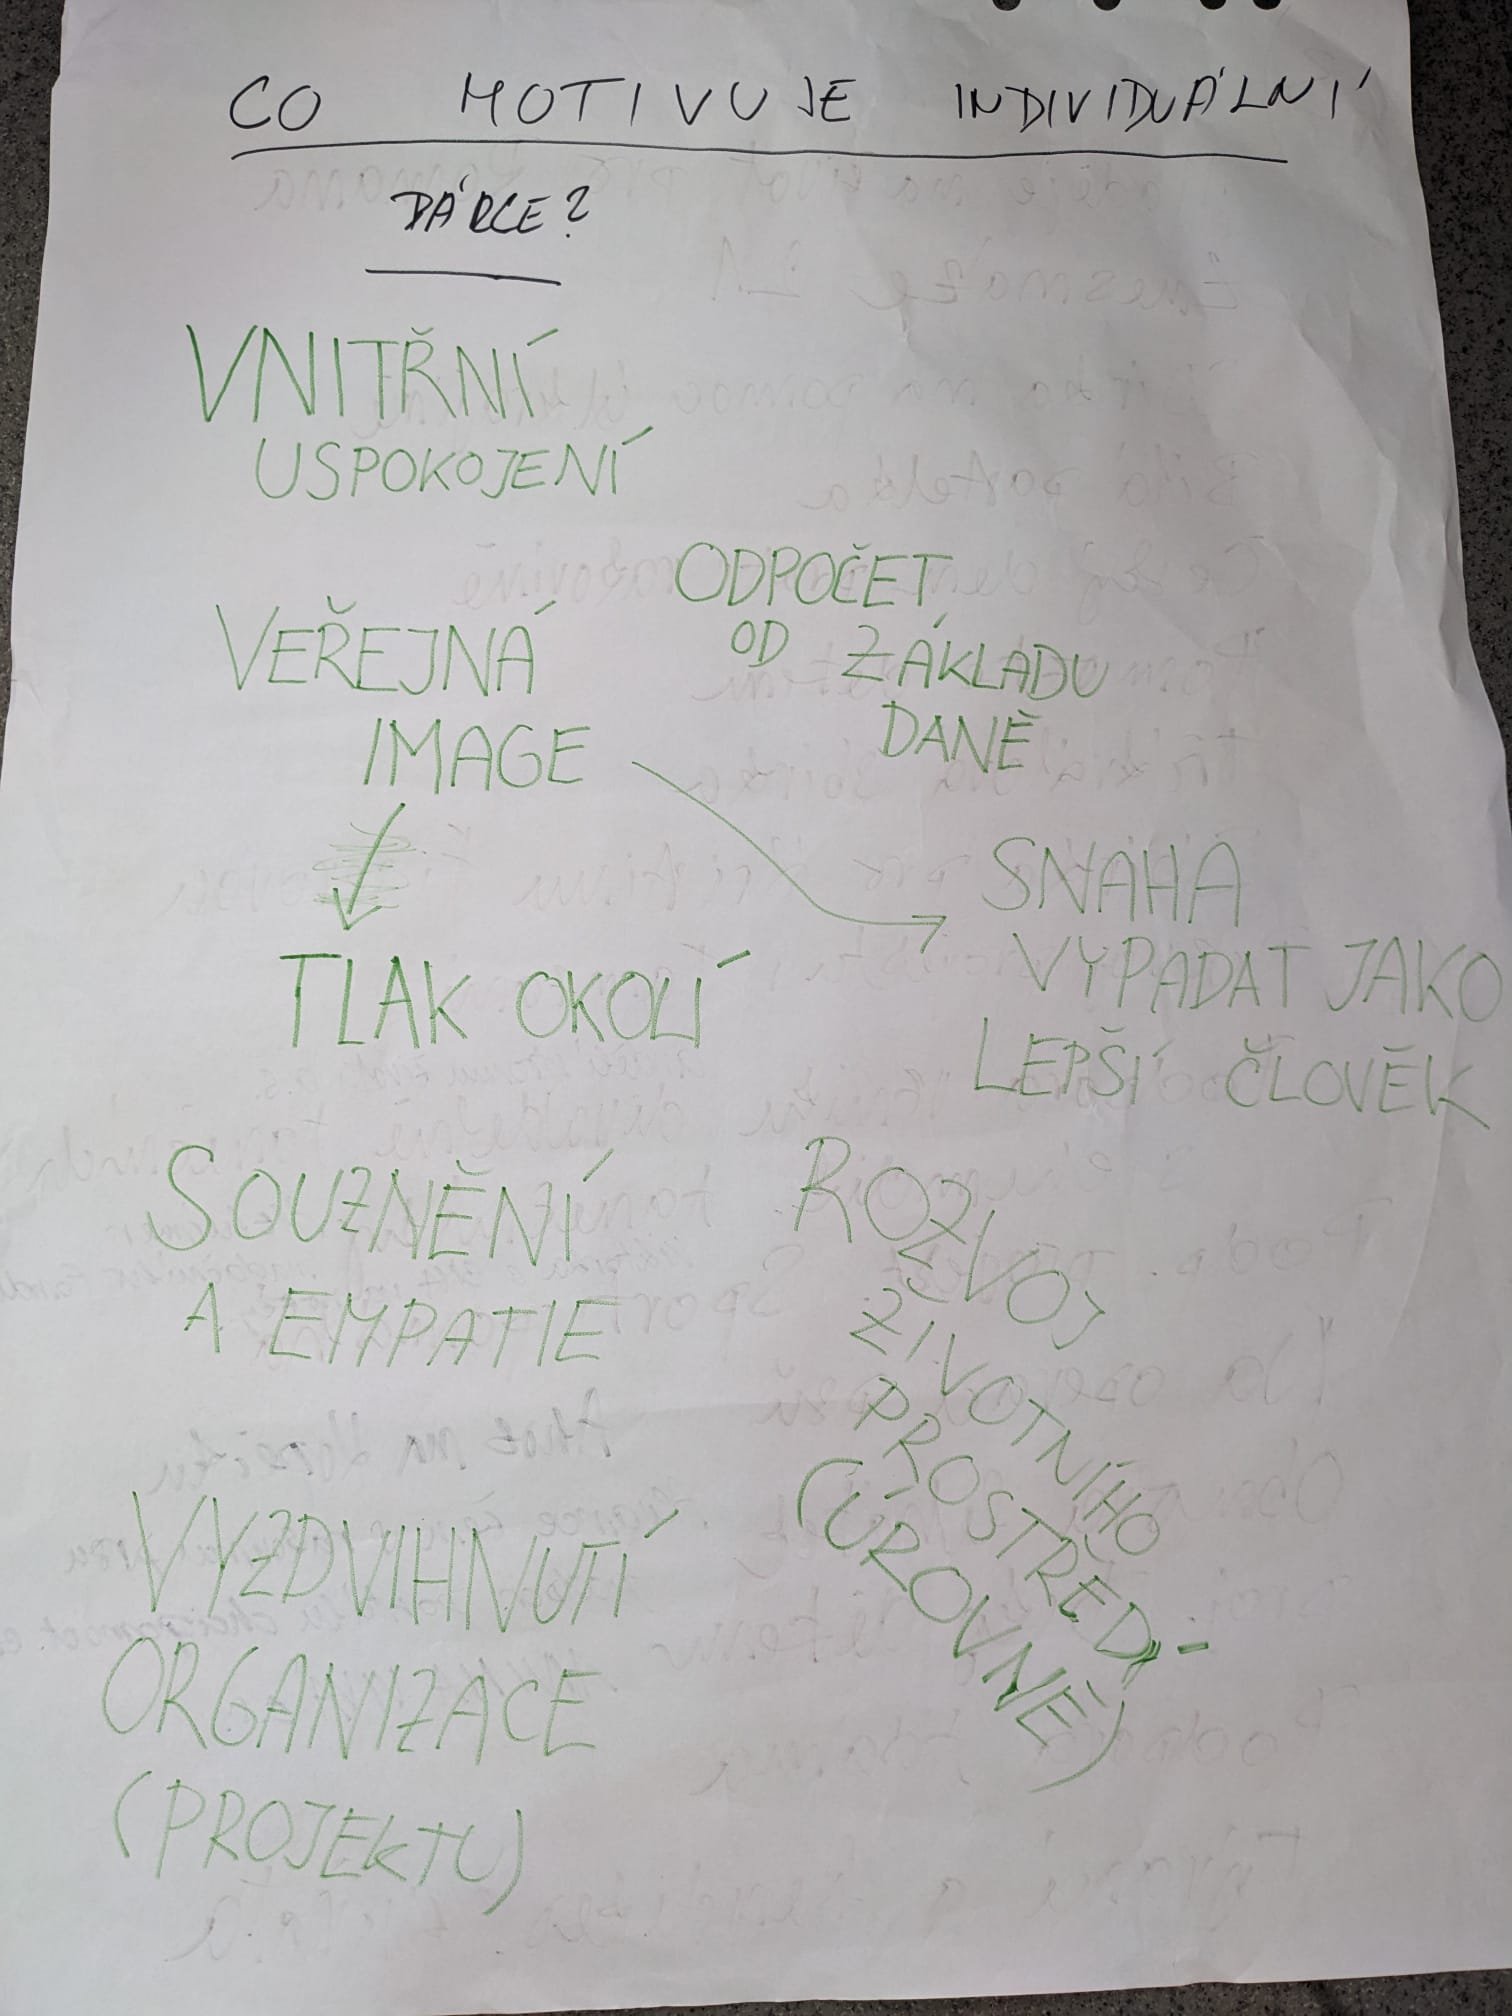 CO MOTIVUJE INDIVIDUÁLNÍ
DÁRCE?
VNITŘNÍ
USPOKOJENÍ
ODPOČET
OD ZÁKLADU
DANĚ
VEŘEJNÁ
IMAGE
SNAHA
VYPADAT JAKO
LEPŠÍ ČLOVĚK
TLAK OKOLÍ
SOUZNĚNÍ
A EMPATIE
ROZVOJ
ŽIVOTNÍHO
PROSTŘEDÍ
(ÚROVNĚ)
VYZDVIHNUTÍ
ORGANIZACE
(PROJEKTU)